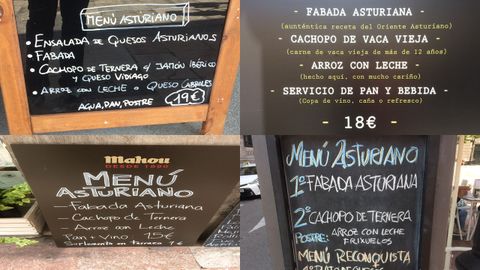 MENÚ ASTURIANO
• ENSALADA DE QUESOS ASTURIANOS
• FABADA
• CACHOPO DE TERNERA c/ JAMÓN IBÉRICO
Y QUESO VIDIAGO
• ARROZ CON LECHE o QUESO CABRALES
AGUA, PAN, POSTRE 19€
- FABADA ASTURIANA -
(auténtica receta del Oriente Asturiano)
- CACHOPO DE VACA VIEJA -
(carne de vaca vieja de más de 12 años)
- ARROZ CON LECHE -
(hecho aquí. con mucho cariño)
- SERVICIO DE PAN Y BEBIDA -
(Copa de vino, caña o refresco)
- 18€ -
Mahou
DESDE 1890
MENÚ
ASTURIANO
- Fabada Asturiana
- Cachopo de Ternera
- Arroz con Leche
Pan + Vino 15€
Suplemento en terraza 1€
MENÚ ASTURIANO
1º FABADA ASTURIANA
2º CACHOPO DE TERNERA
POSTRE: ARROZ CON LECHE
FRIXUELOS
MENÚ RECONQUISTA